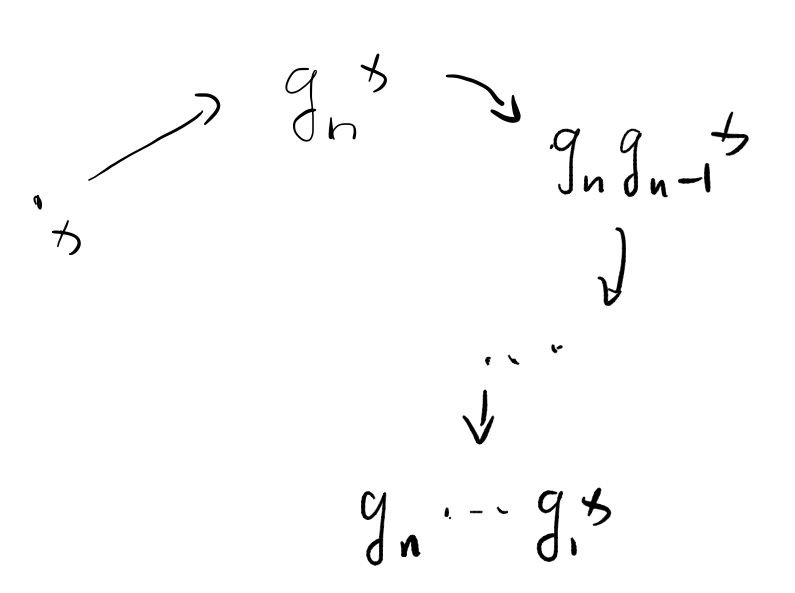 x
gₙ x
gₙ gₙ₋₁ x
...
gₙ ... g₁ x